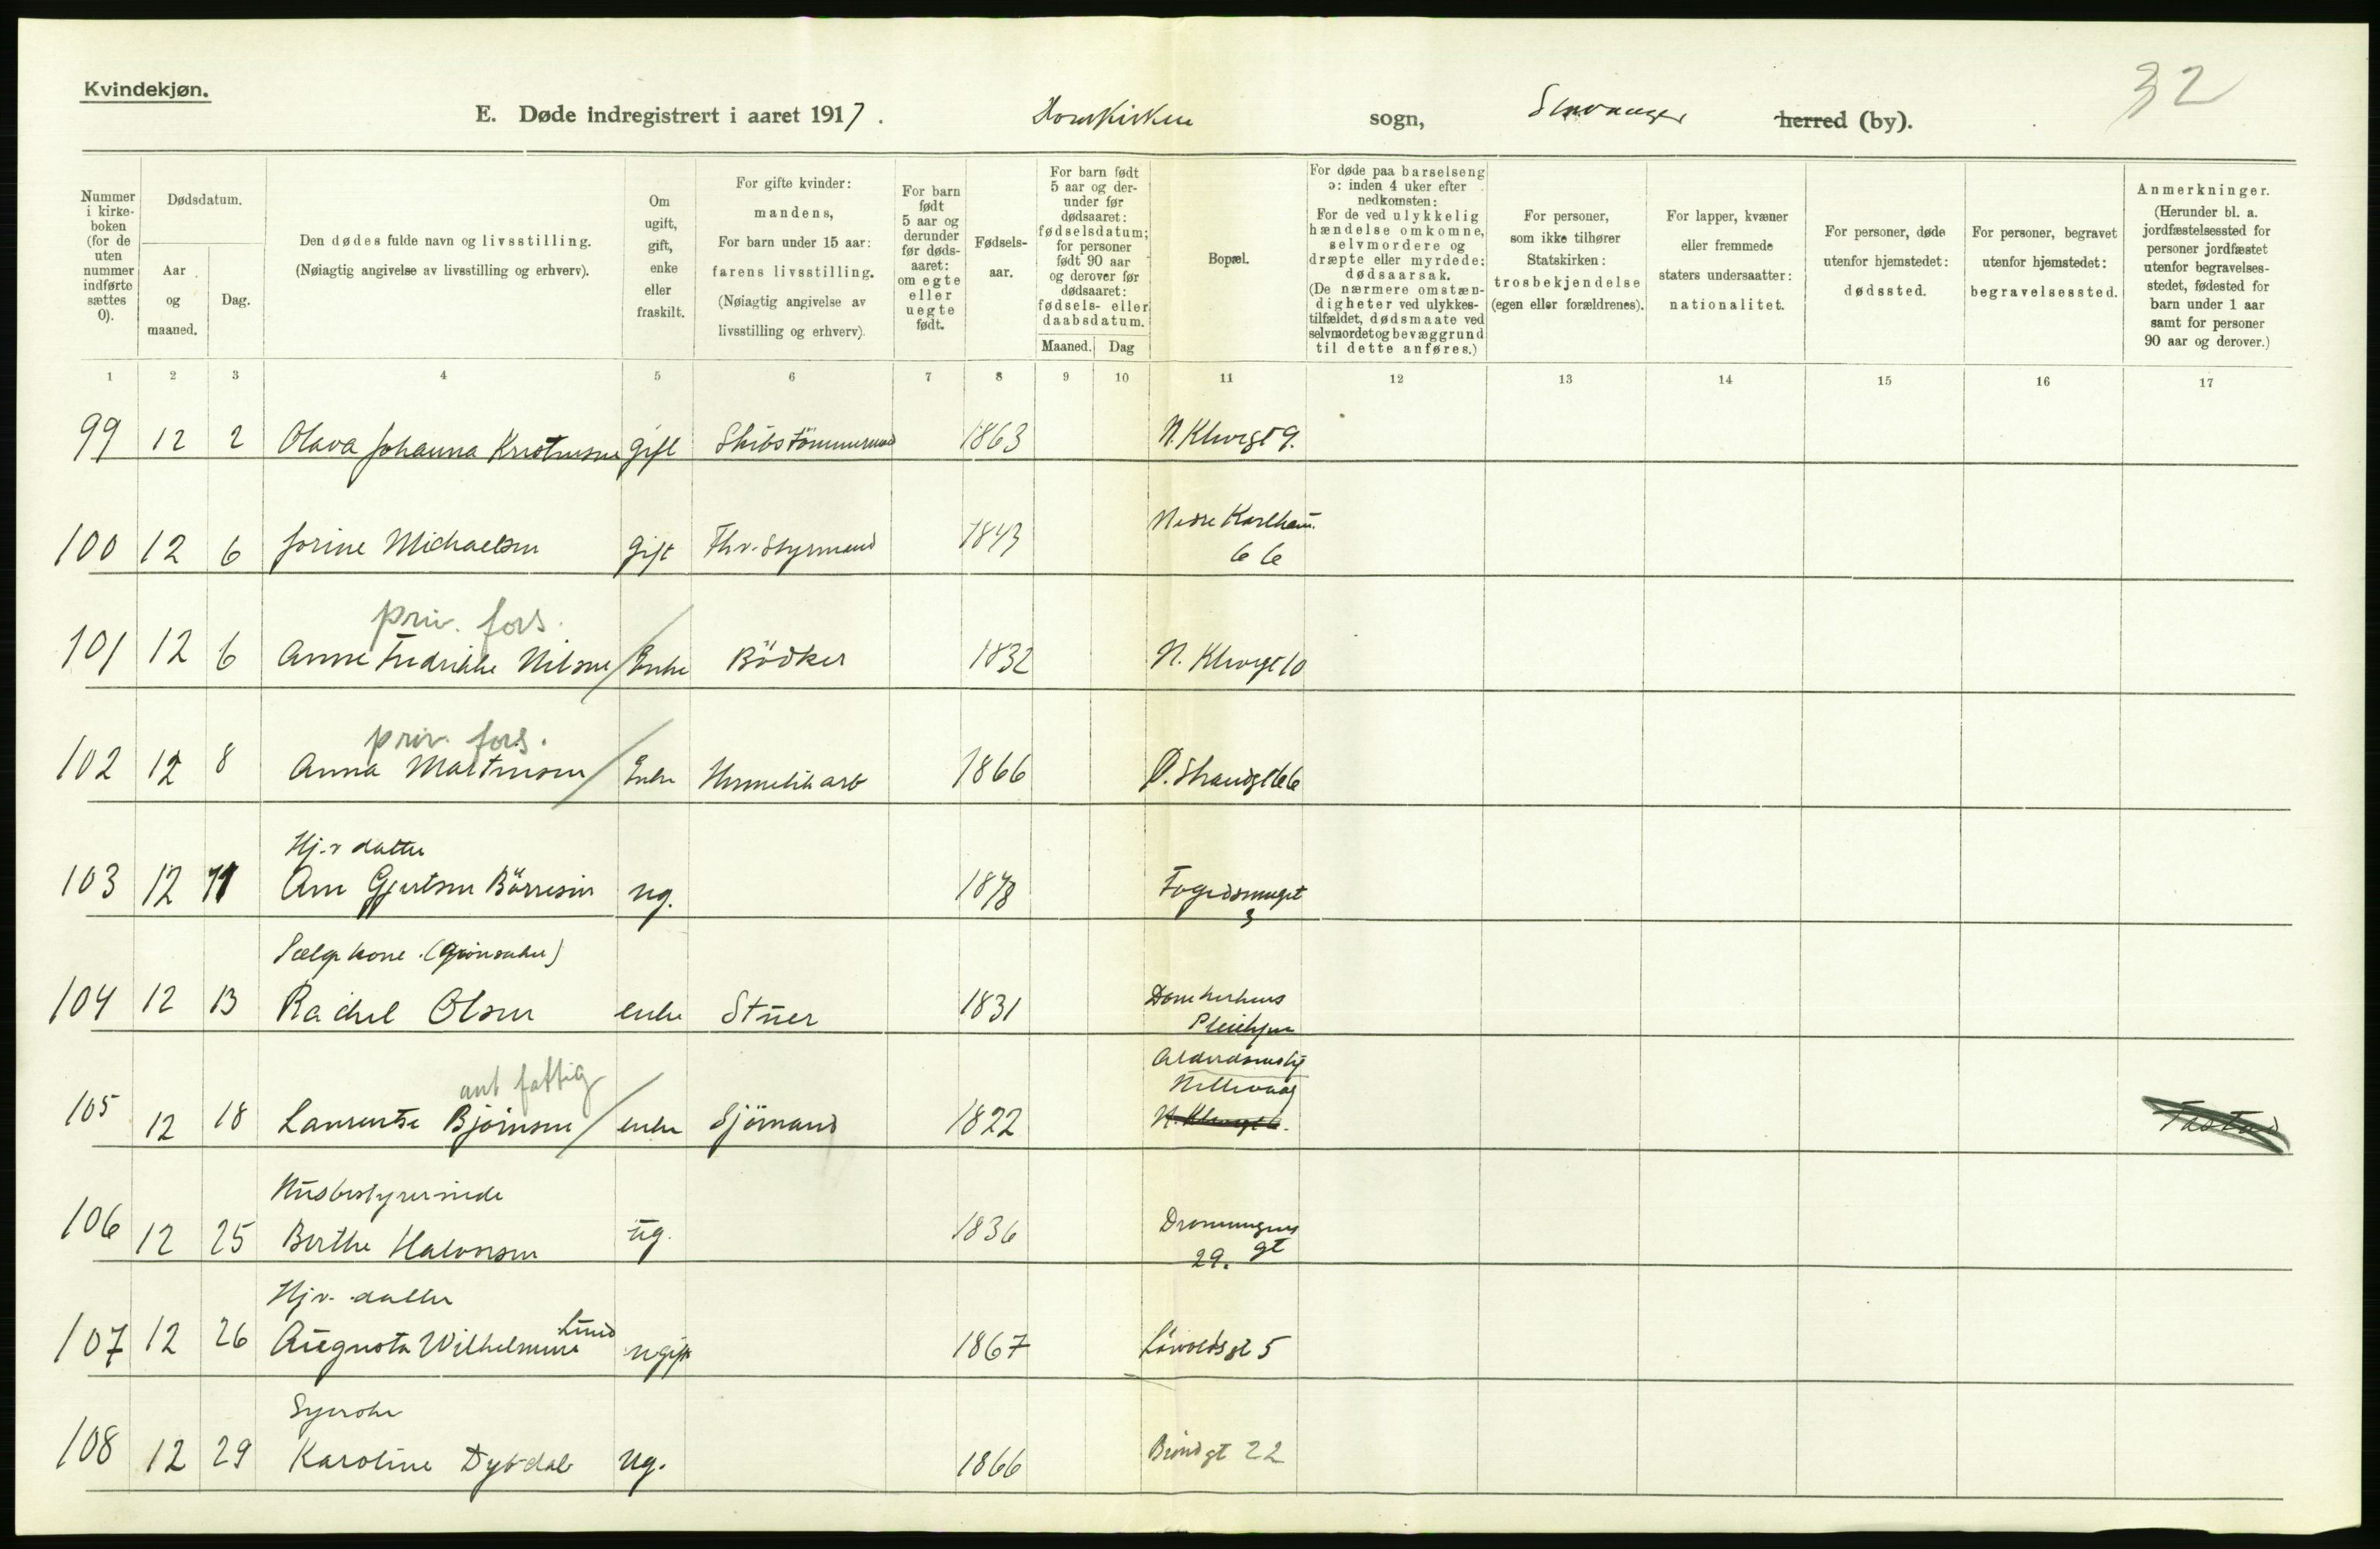 Kvindekjøn.
E. Døde indregistrert i aaret 1917. Domkirken sogn, Stavanger herred (by).
32
Nummer i kirke-boken (for de uten nummer indførte sættes 0).
Dødsdatum.
Aar og maaned.
Dag.
Den dødes fulde navn og livsstilling.
(Nøiagtig angivelse av livsstilling og erhverv).
Om ugift, gift, enke eller fraskilt.
For gifte kvinder: mandens,
For barn under 15 aar: farens livsstilling.
(Nøiagtig angivelse av livsstilling og erhverv).
For barn født 5 aar og derunder før døds-aaret: om egte eller uegte født.
Fødsels-aar.
For barn født 5 aar og der-under før dødsaaret: fødselsdatum; for personer født 90 aar og derover før dødsaaret: fødsels- eller daabsdatum.
Maaned. Dag
Bopæl.
For døde paa barselseng ɔ: inden 4 uker efter nedkomsten:
For de ved ulykkelig hændelse omkomne, selvmordere og dræpte eller myrdede: dødsaarsak.
(De nærmere omstæn-digheter ved ulykkes-tilfældet, dødsmaate ved selvmordet og bevæggrund til dette anføres.)
For personer, som ikke tilhører Statskirken: trosbekjendelse (egen eller forældrenes).
For lapper, kvæner eller fremmede staters undersaatter: nationalitet.
For personer, døde utenfor hjemstedet: dødssted.
For personer, begravet utenfor hjemstedet: begravelsessted.
Anmerkninger.
(Herunder bl. a. jordfæstelsessted for personer jordfæstet utenfor begravelses-stedet, fødested for barn under 1 aar samt for personer 90 aar og derover.)
1 2 3 4 5 6 7 8 9 10 11 12 13 14 15 16 17
99 12 2 Olava Johanna Kristensen gift Skibstömmermand 1863 N. Klevegt 9.
Nedre Karlhau.
100 12 6 Jorine Michaelsen gift Fhv. Styrmand 1843 66
priv. fors.
101 12 6 Anne Fredrikke Nilsen / Enke Bödker 1832 N. Klevegt 10
priv. fors.
102 12 8 Anna Martinsen / Enke Hermetikarb 1866 Ø. Strandgt 66
Hj.v datter
103 12 11 Ane Gjertsen Börresen ug. 1878 Fogedsmuget
3
Sælgekone (Grönsaker)
104 12 13 Rachel Olsen enke Stuer 1831 Domkirkens
Pleiehjem
ant fattig
105 12 18 Laurentse Björnsen / enke Sjömand 1822 Hillevaag
N. Klevegt 6.
Tasta
Husbestyrerinde
106 12 25 Berthe Halvorsen ug. 1836 Dronningens
29. gt
Hj v. datter
107 12 26 Augusta Wilhelmine Lund ugift 1867 Lövoldsgt 5
Syerske
108 12 29 Karoline Dybdal ug. 1866 Bröndgt 22